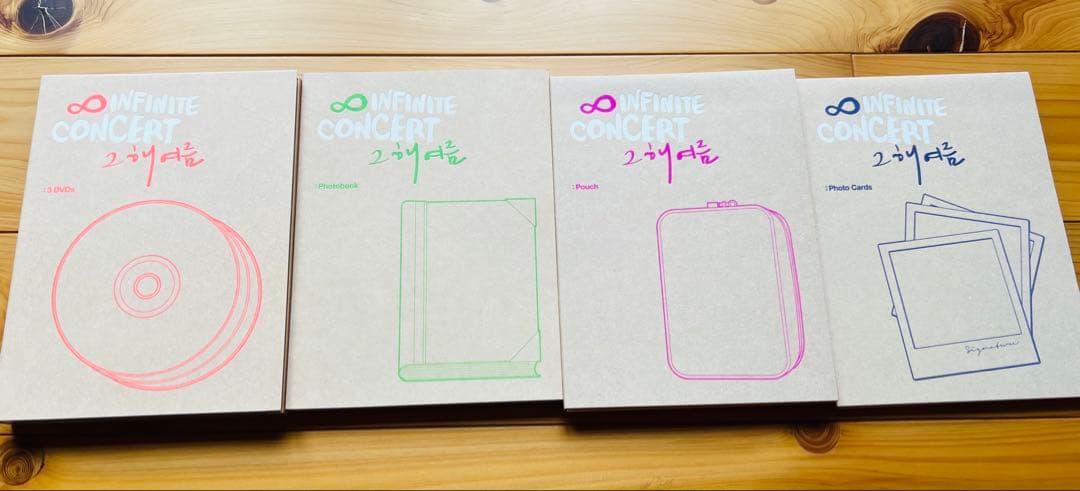 ∞ INFINITE
CONCERT
그 해 여름
: 3 DVDs
∞ INFINITE
CONCERT
그 해 여름
: Photobook
∞ INFINITE
CONCERT
그 해 여름
: Pouch
∞ INFINITE
CONCERT
그 해 여름
: Photo Cards
Signature